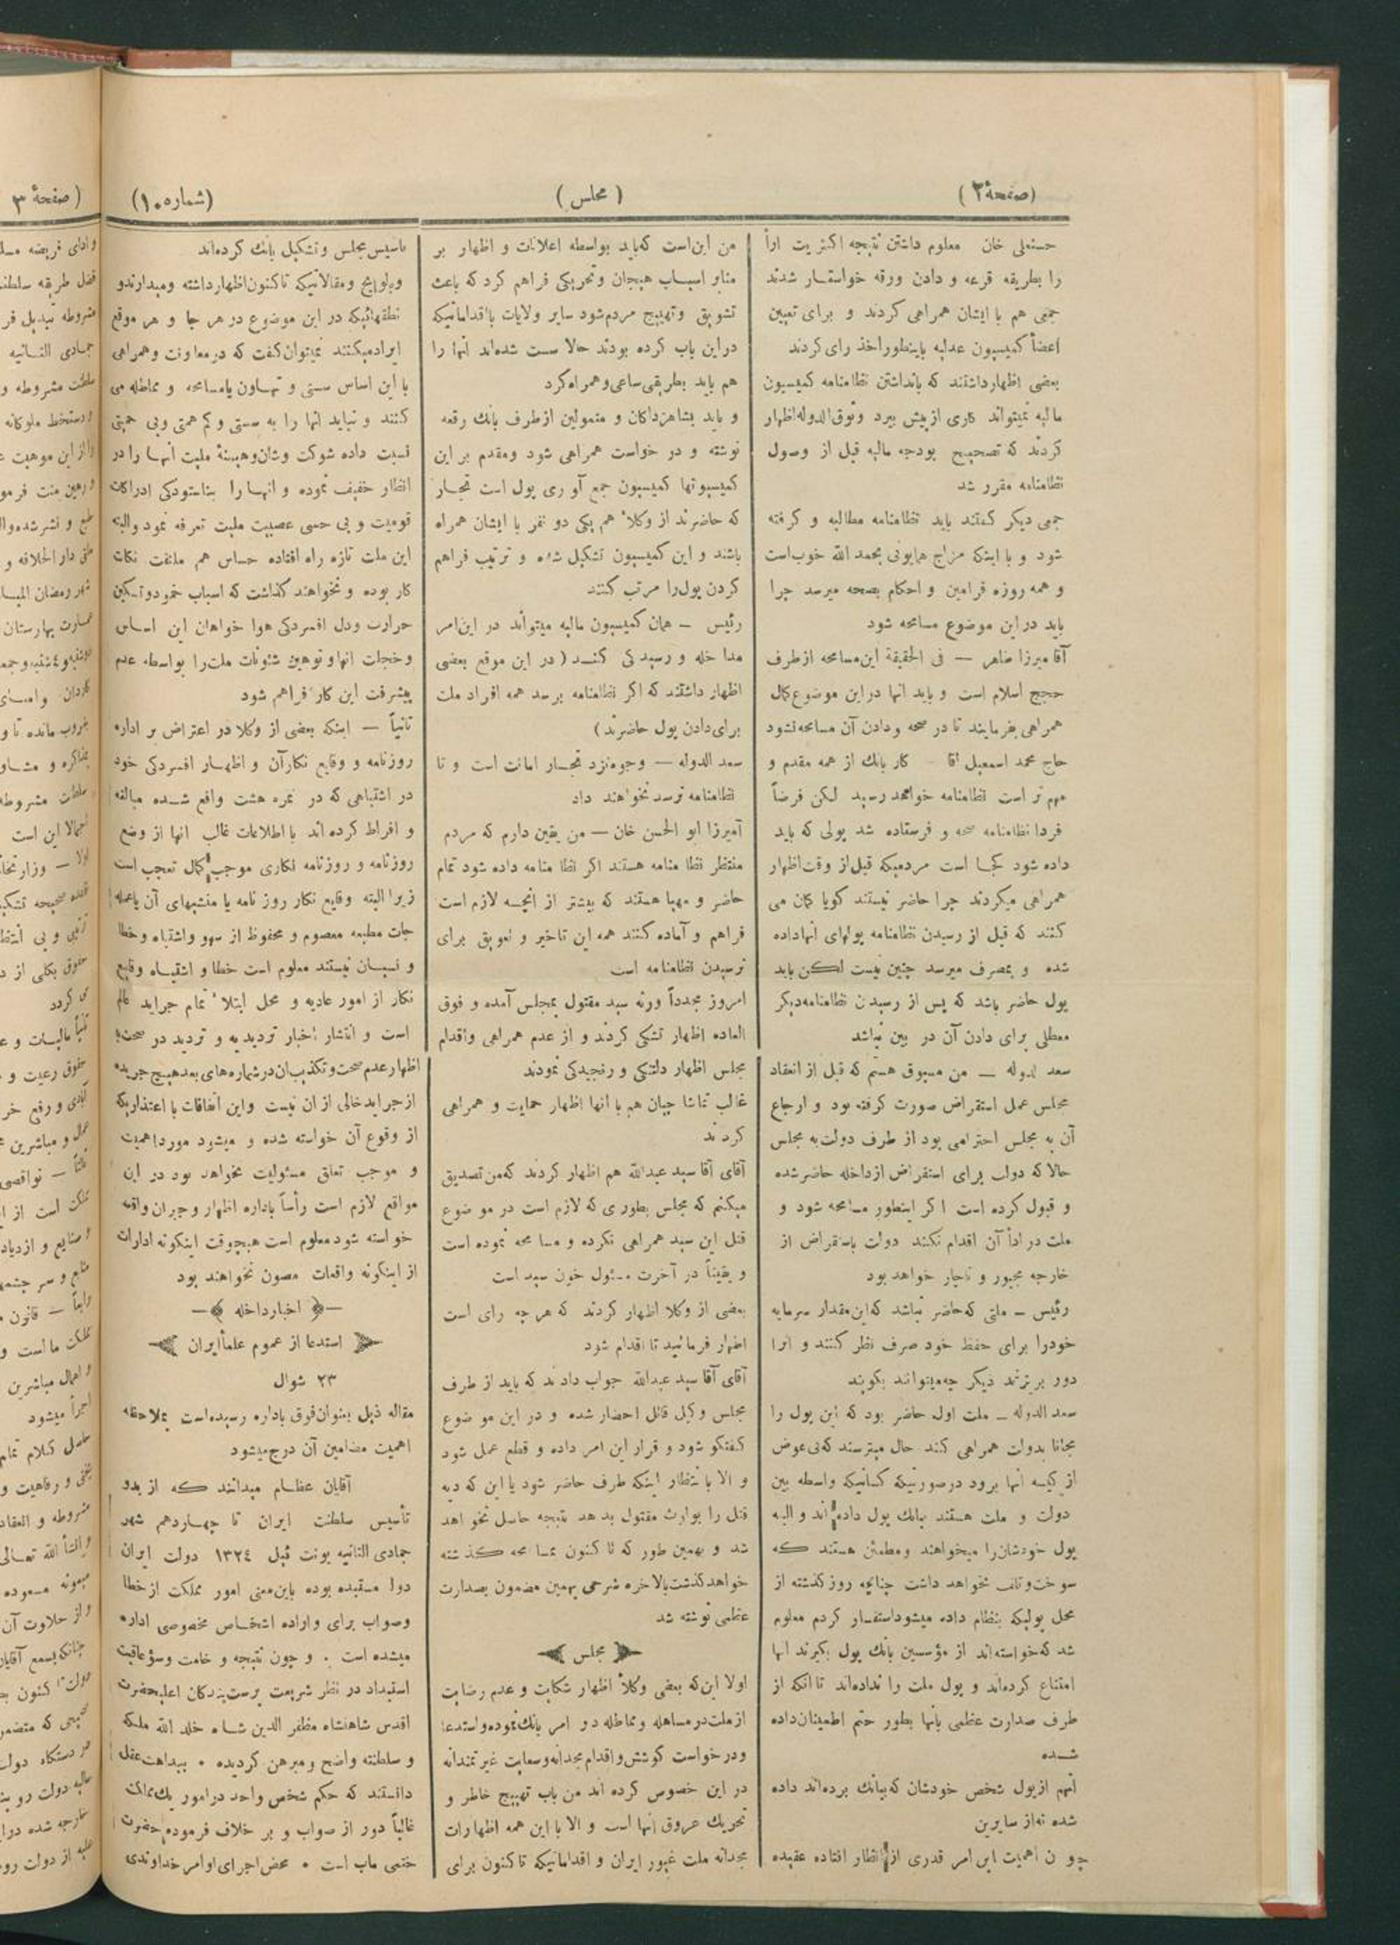 (صفحهٔ ۲)
(مجلس)
(شماره ۱۰)
حسنعلی خان معلوم داشتن نتیجه اکثریت ارأ
را بطریقه قرعه و دادن ورقه خواستار شدند
جمعی هم با ایشان همراهی کردند و برای تعیین
اعضأ کمیسیون عدلیه باینطور اخذ رای کردند
بعضی اظهار داشتند که بانداشتن نظامنامه کمیسیون
مالیه نمیتواند کاری از پیش ببرد وثوق الدوله اظهار
کردند که تصحیح بودجه مالیه قبل از وصول
نظامنامه مقرر شد
جمعی دیگر گفتند باید نظامنامه مطالبه و گرفته
شود و با اینکه مزاج همایونی بحمد الله خوب است
و همه روزه فرامین و احکام بصحه میرسد چرا
باید در این موضوع مسامحه شود
آقا میرزا طاهر — فی الحقیقة این مسامحه از طرف
حجج اسلام است و باید انها در این موضوع کمال
همراهی بفرمایند تا در صحه و دادن آن مسامحه نشود
حاج محمد اسمعیل آقا کار بانک از همه مقدم و
مهم تر است نظامنامه خواهد رسید لکن فرضاً
فردا نظامنامه صحه و فرستاده شد پولی که باید
داده شود کجا است مردمیکه قبل از وقت اظهار
همراهی میکردند چرا حاضر نیستند گویا گمان می
کنند که قبل از رسیدن نظامنامه پولهای انها داده
شده و بمصرف میرسد چنین نیست لکن باید
پول حاضر باشد که پس از رسیدن نظامنامه دیگر
معطلی برای دادن آن در بین نباشد
سعد لدوله — من مسبوق هستم که قبل از انعقاد
مجلس عمل استقراض صورت گرفته بود و ارجاع
آن به مجلس احترامی بود از طرف دولت به مجلس
حالا که دولت برای استقراض از داخله حاضر شده
و قبول کرده است اگر اینطور مسامحه شود و
ملت در ادأ آن اقدام نکنند دولت باستقراض از
خارجه مجبور و ناچار خواهد بود
رئیس — ملتی که حاضر نباشد که این مقدار سرمایه
خود را برای حفظ خود صرف نظر کنند و انرا
دور بریزند دیگر چه میتوانند بگویند
سعد الدوله — ملت اول حاضر بود که این پول را
مجانا بدولت همراهی کند حال میترسند که بی عوض
از کیسه انها برود در صورتیکه کسانیکه واسطه بین
دولت و ملت هستند ببانک پول داده اند و البه
پول خودشان را میخواهند و مطمئن هستند که
سوخت و تلف نخواهد داشت چنانچه روز گذشته از
محل پولیکه بنظام داده میشود استفسار کردم معلوم
شد که خواسته اند از مؤسسین بانک پول بگیرند انها
امتناع کرده اند و پول ملت را نداده اند تا انکه از
طرف صدارت عظمی بانها بطور حتم اطمینان داده
شده
انهم از پول شخص خودشان که ببانک برده اند داده
شده نه از سایرین
چون اهمیت این امر قدری از انظار افتاده عقیده
من این است که باید بواسطه اعلانات و اظهار بر
منابر اسباب هیجان و تحریکی فراهم کرد که باعث
تشویق و تهییج مردم شود سایر ولایات با اقداماتیکه
در این باب کرده بودند حالا سست شده اند انها را
هم باید بطریقی ساعی و همراه کرد
و باید بشاهزادگان و متمولین از طرف بانک رقعه
نوشته و در خواست همراهی شود و مقدم بر این
کمیسیونها کمیسیون جمع آوری پول است تجار
که حاضرند از وکلاء هم یکی دو نفر با ایشان همراه
باشند و این کمیسیون تشکیل شده و ترتیب فراهم
کردن پول را مرتب کنند
رئیس — همان کمیسیون مالیه میتواند در این امر
مداخله و رسیدگی کند (در این موقع بعضی
اظهار داشتند که اگر نظامنامه برسد همه افراد ملت
برای دادن پول حاضرند)
سعد الدوله — وجوه نزد تجار امانت است و تا
نظامنامه نرسد نخواهند داد
آمیرزا ابو الحسن خان — من یقین دارم که مردم
منتظر نظا منامه هستند اگر نظا منامه داده شود تمام
حاضر و مهیا هستند که بیشتر از انچه لازم است
فراهم و آماده کنند همه این تاخیر و تعویق برای
نرسیدن نظامنامه است
امروز مجدداً ورثه سید مقتول بمجلس آمده و فوق
العاده اظهار تشکی کردند و از عدم همراهی و اقدام
مجلس اظهار دلتنگی و رنجیدگی نمودند
غالب تماشا چیان هم با انها اظهار حمایت و همراهی
کردند
آقای آقا سید عبدالله هم اظهار کردند که من تصدیق
میکنم که مجلس بطوری که لازم است در موضوع
قتل این سید همراهی نکرده و مسامحه نموده است
و یقیناً در آخرت مسئول خون سید است
بعضی از وکلا اظهار کردند که هر چه رای است
اظهار فرمائید تا اقدام شود
آقای آقا سید عبدالله جواب دادند که باید از طرف
مجلس وکیل قاتل احضار شده و در این موضوع
گفتگو شود و قرار این امر داده و قطع عمل شود
و الا با نتظار اینکه طرف حاضر شود یا این که دیه
قتل را بوارث مقتول بدهد نتیجه حاصل نخواهد
شد و بهمین طور که تا کنون بمسامحه گذشته
خواهد گذشت بالاخره شرحی بهمین مضمون بصدارت
عظمی نوشته شد
مجلس
اولا این که بعضی وکلأ اظهار شکایت و عدم رضایت
از ملت در مساهله و مماطله در امر بانک نموده و استدعا
و در خواست کوشش و اقدام مجدانه و سعایت غیرتمندانه
در این خصوص کرده اند من باب تهییج خاطر و
تحریک عروق انها است و الا با این همه اظهارات
مجدانه ملت غیور ایران و اقداماتیکه تا کنون برای
تاسیس مجلس و تشکیل بانک کرده اند
و بلوایح و مقالاتیکه تاکنون اظهار داشته و میدارند و
نطقهائیکه در این موضوع در هر جا و هر موقع
ایراد میکنند نمیتوان گفت که در معاونت و همراهی
با این اساس سستی و تهاون یا مسامحه و مماطله می
کنند و نباید انها را به سستی و کم همتی و بی حمیتی
نسبت داده شوکت و شان و هیمنهٔ ملیت انها را در
انظار خفیف نموده و انها را بناستودگی ادراکات
قومیت و بی حسی عصبیت ملیت تعرفه نمود و البته
این ملت تازه راه افتاده حساس هم ملتفت نکات
کار بوده و نخواهند گذاشت که اسباب خمود و تسکین
حرارت و دل افسردگی هوا خواهان این اساس
و خجلت انها و توهین شئونات ملت را بواسطه عدم
پیشرفت این کار فراهم شود
ثانیاً — اینکه بعضی از وکلا در اعتراض بر اداره
روزنامه و وقایع نگار آن و اظهار افسردگی خود
در اشتباهی که در نمره هشت واقع شده مبالغه
و افراط کرده اند با اطلاعات غالب انها از وضع
روزنامه و روزنامه نگاری موجب کمال تعجب است
زیرا البته وقایع نگار روز نامه یا منشیهای آن یا عمله
جات مطبعه معصوم و محفوظ از سهو و اشتباه و خطا
و نسیان نیستند معلوم است خطا و اشتباه وقایع
نگار از امور عادیه و محل ابتلاء تمام جراید عالم
است و انتشار اخبار تردیدیه و تردید در صحت یا
اظهار عدم صحت و تکذیب ان در شماره های بعد هیچ جریده
از جراید خالی از ان نیست و این اتفاقات با اعتذاریکه
از وقوع آن خواسته شده و میشود مورد اهمیت
و موجب تعلق مسئولیت نخواهد بود در این
مواقع لازم است رأساً باداره اظهار و جبران واقعه
خواسته شود معلوم است هیچوقت اینگونه ادارات
از اینگونه واقعات مصون نخواهند بود
اخبار داخله
استدعا از عموم علمأ ایران
۲۳ شوال
مقاله ذیل بعنوان فوق باداره رسیده است بملاحظه
اهمیت مضامین آن درج میشود
آقایان عظام میدانند که از بدو
تأسیس سلطنت ایران تا چهاردهم شهر
جمادی الثانیه یونت ئیل ۱۳۲۴ دولت ایران
دولـ مستبده بوده باین معنی امور مملکت از خطا
وصواب برای و اراده اشخاص مخصوصی اداره
میشده است . و چون نتیجه و خامت و سؤ عاقبت
استبداد در نظر شریعت پرست بندگان اعلیحضرت
اقدس شاهنشاه مظفر الدین شاه خلد الله ملکه
و سلطنته واضح و مبرهن گردیده . ببداهت عقل
دانستند که حکم شخص واحد در امور یک مملکت
غالباً دور از صواب و بر خلاف فرموده حضرت
ختمی ماب است . محض اجرای اوامر خداوندی
(صفحهٔ ۳